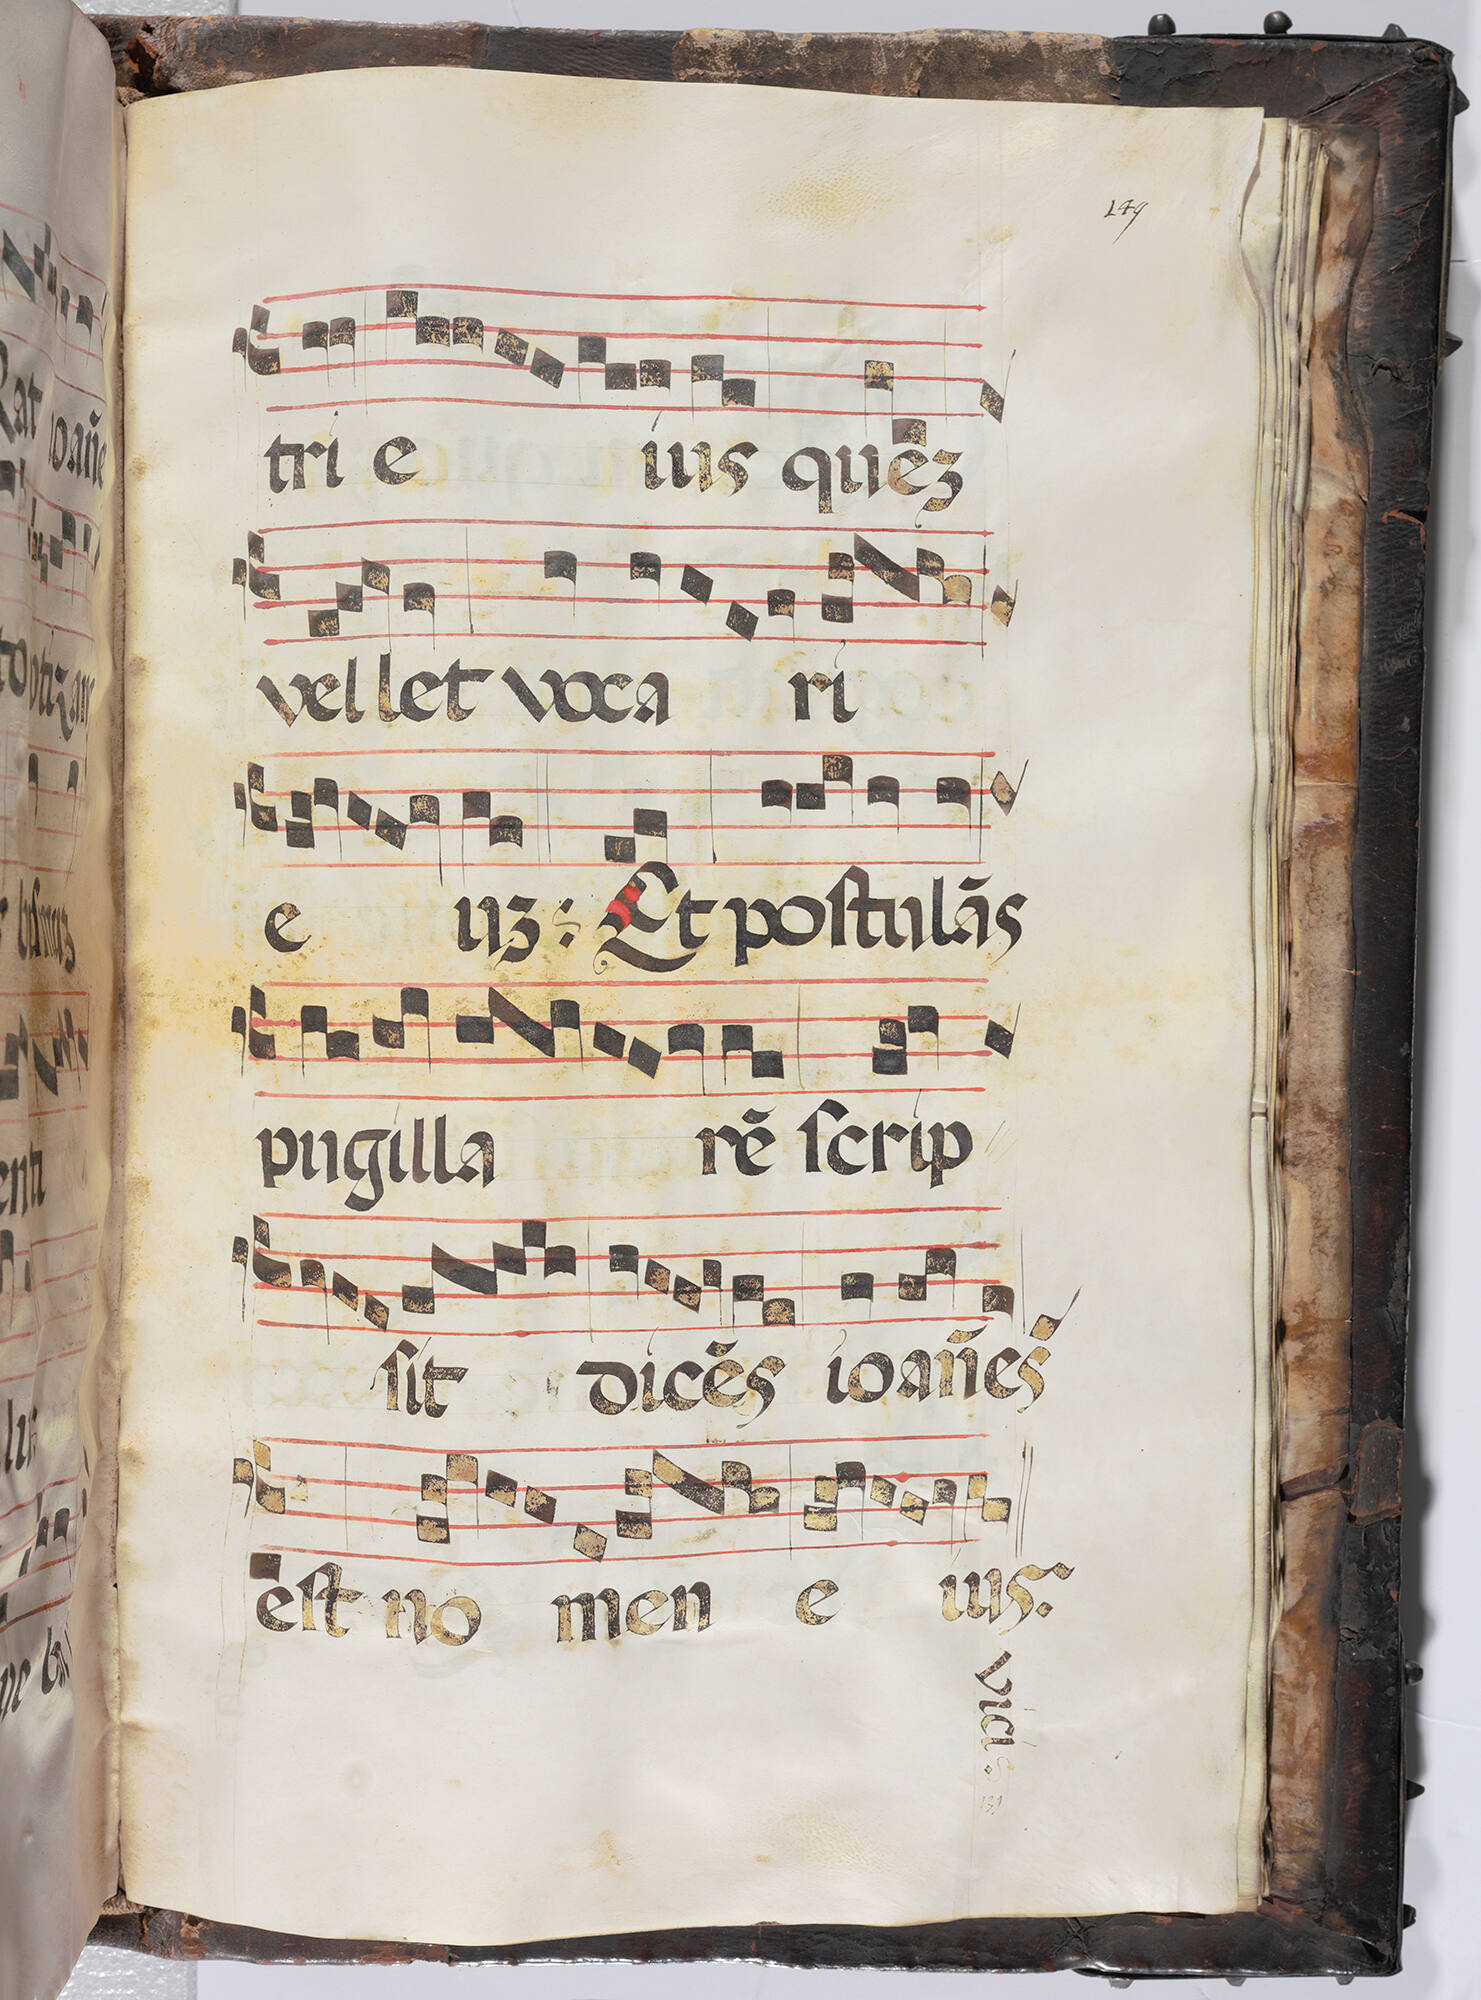 149
tri e ius quēʒ
vellet voca ri
e uʒ: Et postulās
pugilla rē scrip
sit dicēs ioañes
est no men e ius:
vici